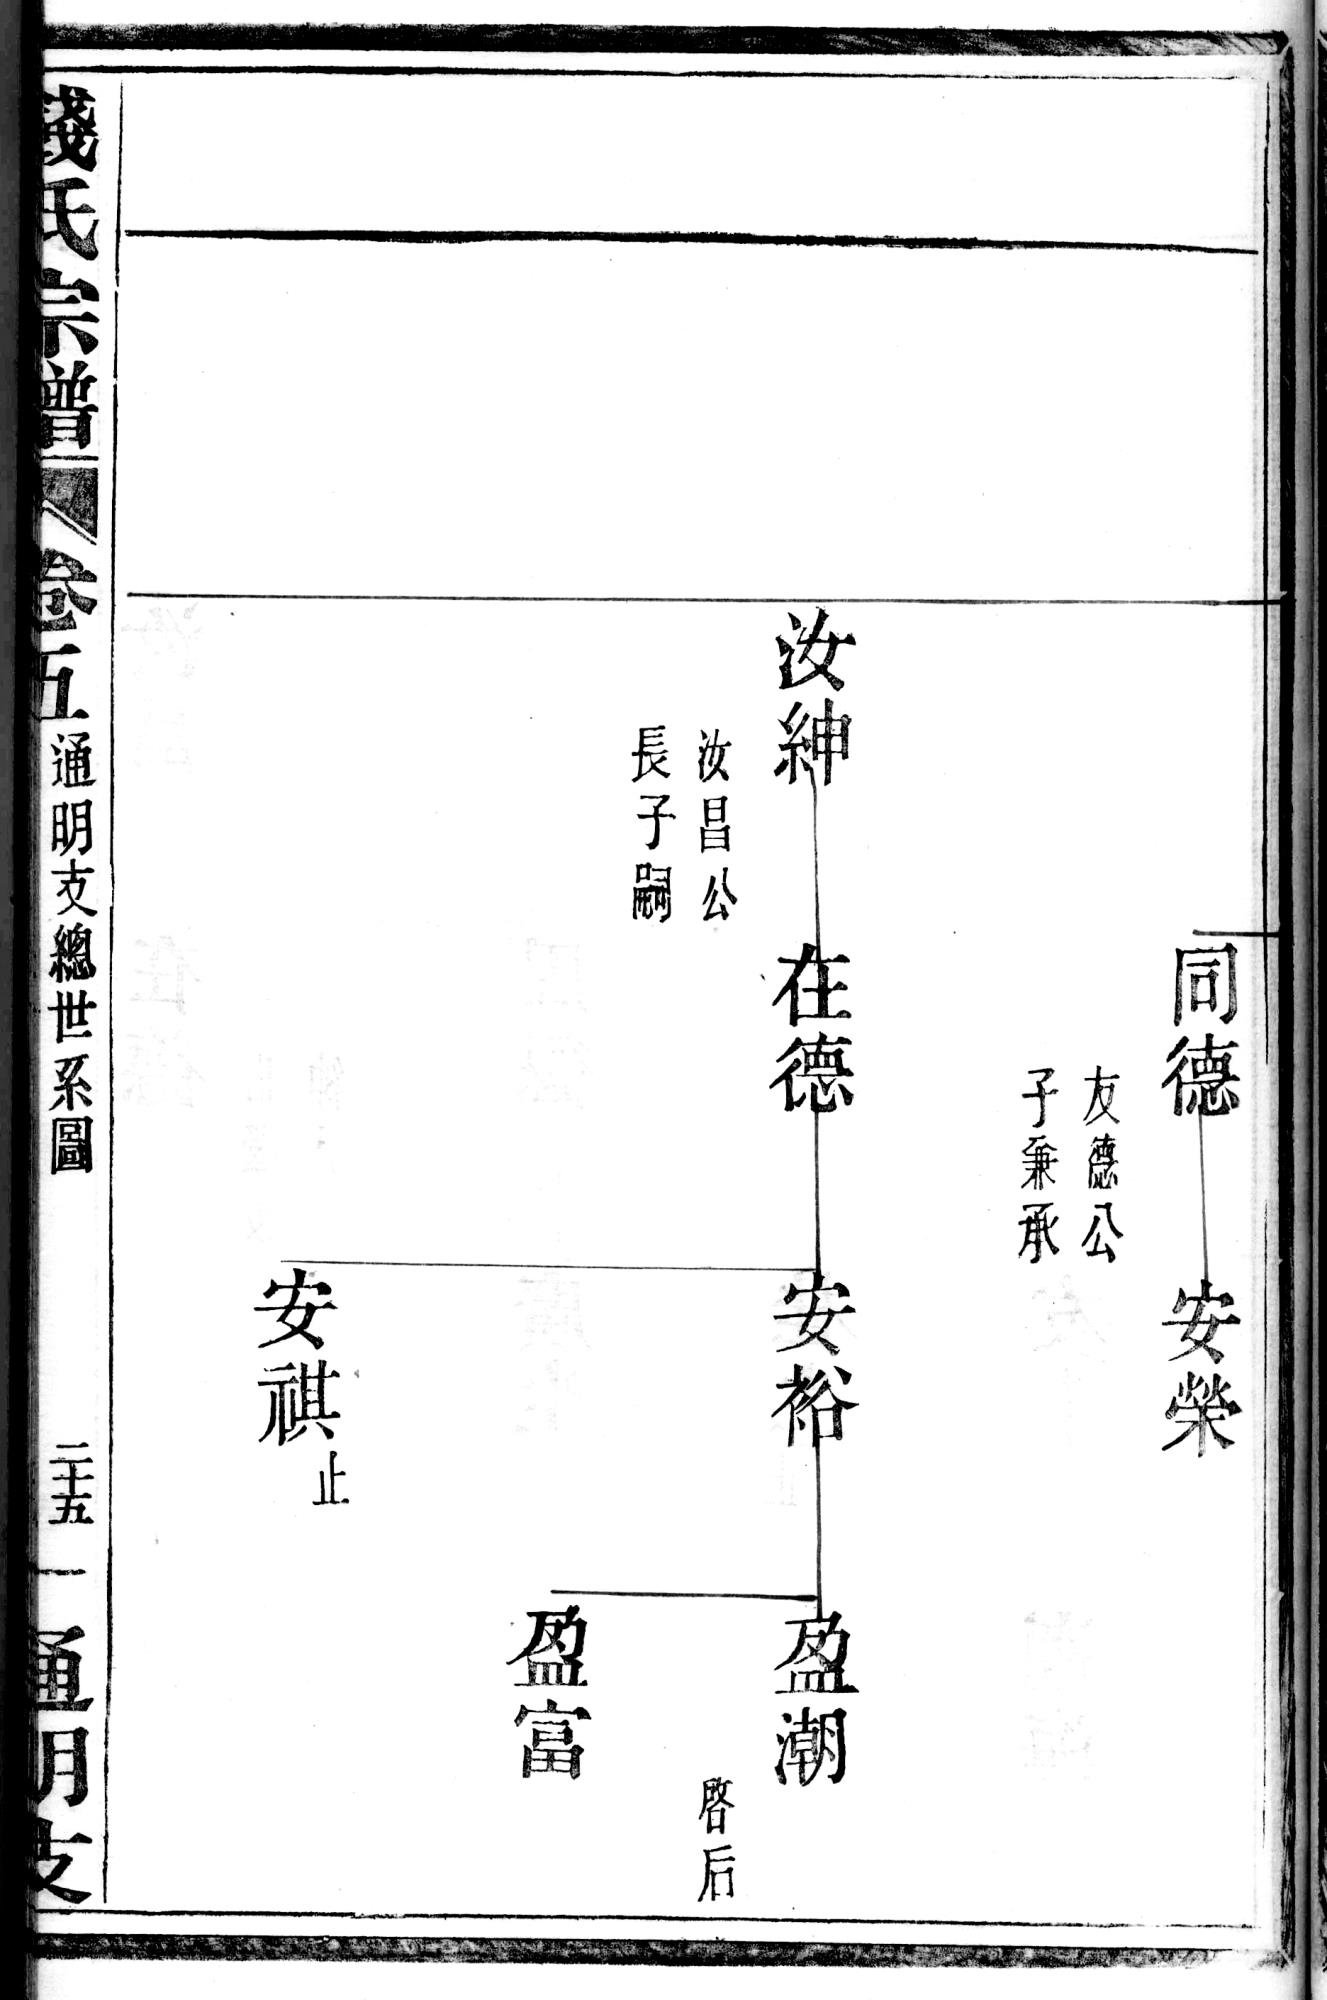 同德
友德公
子兼承
安榮
汝紳
汝昌公
長子嗣
在德
安裕
盈潮
啓后
盈富
安祺
止
錢氏宗譜
卷五
通明支總世系圖
二十五
一
通明支